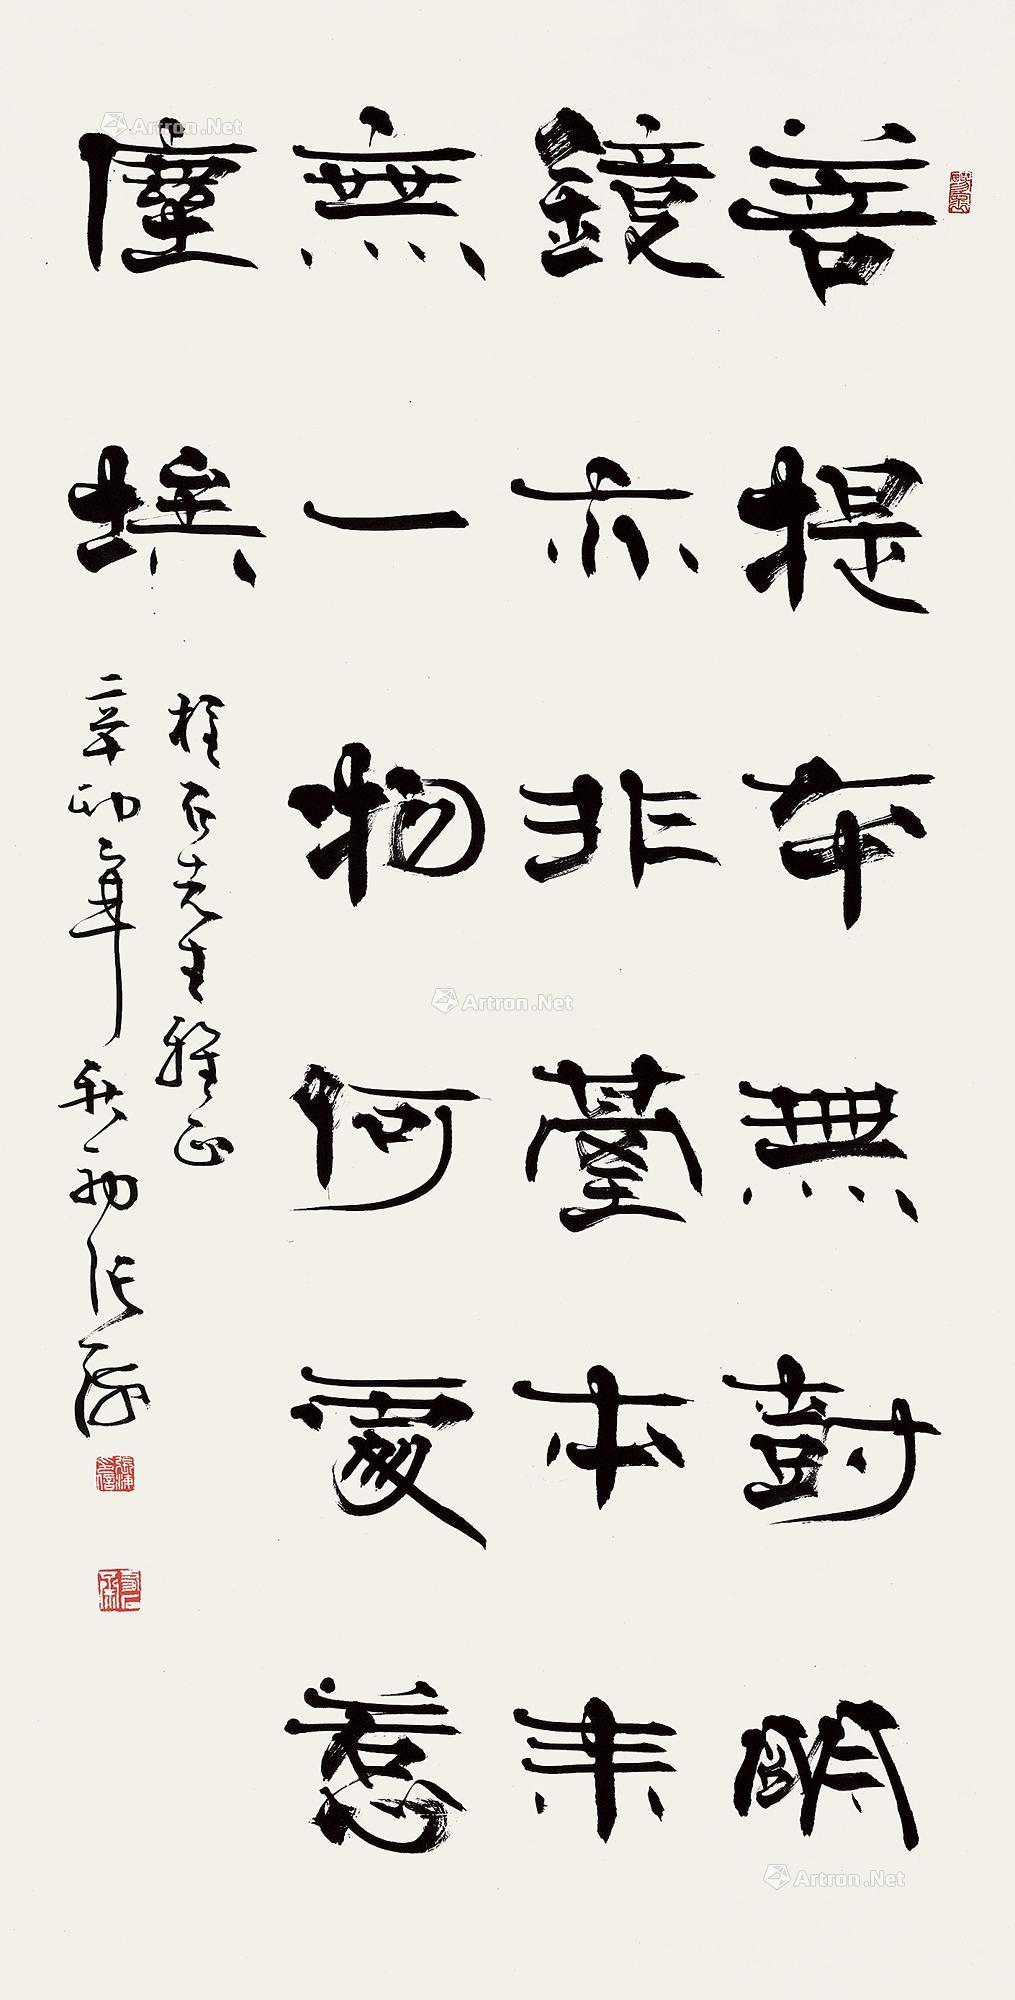 菩提本無樹明
鏡亦非臺本来
無一物何處惹
塵埃
先生雅正
辛卯年秋初張海
Artron.Net
Artron.Net
Artron.Net